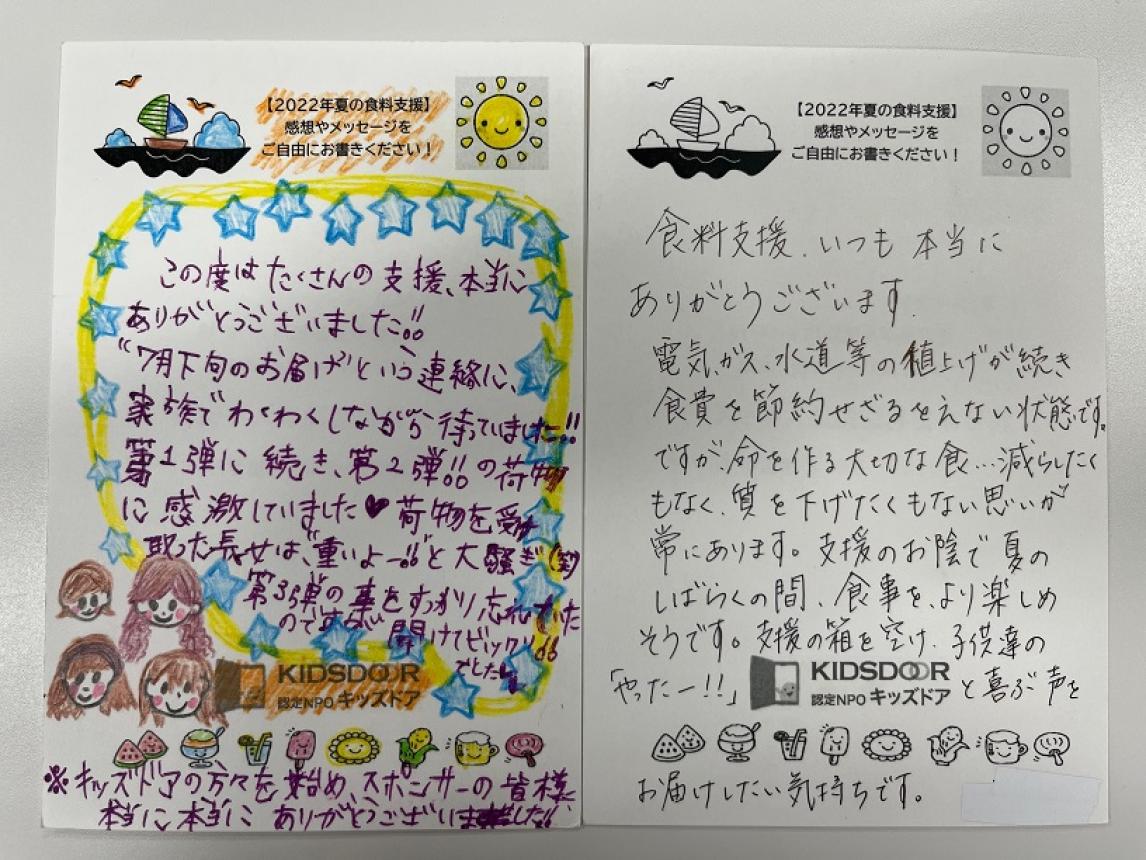 【2022年夏の食料支援】
感想やメッセージを
ご自由にお書きください！
この度はたくさんの支援、本当に
ありがとうございました!!
"7月下旬のお届け"という連絡に、
家族でわくわくしながら待っていました!!
第1弾に続き、第2弾!!の荷物
に感激していました♥荷物を受け
取った長女は、"重いよー!!"と大騒ぎ(笑)
第3弾の事をすっかり忘れていた
のですが、開けてビックリ!!
でした
KIDSDOOR
認定NPO キッズドア
※キッズドアの方々を始め、スポンサーの皆様
本当に本当にありがとうございました!!
【2022年夏の食料支援】
感想やメッセージを
ご自由にお書きください！
食料支援、いつも本当に
ありがとうございます.
電気、ガス、水道等の値上げが続き
食費を節約せざるをえない状態です。
ですが、命を作る大切な食…減らしたく
もなく、質を下げたくもない思いが
常にあります。支援のお陰で夏の
しばらくの間、食事を、より楽しめ
そうです。支援の箱を空け、子供達の
「やったー!!」と喜ぶ声を
KIDSDOOR
認定NPO キッズドア
お届けしたい気持ちです。